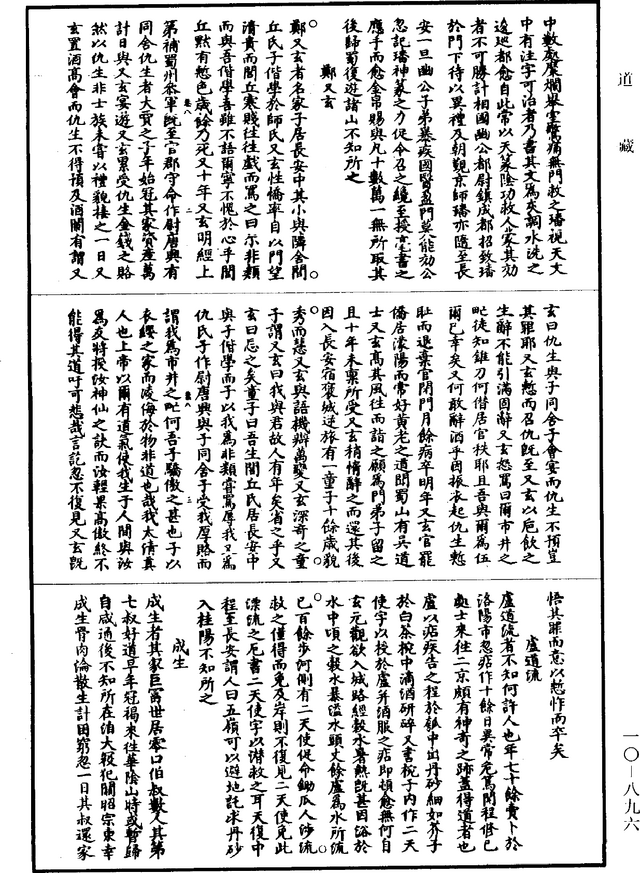 道藏
一〇—八九六
中數處糜爛舉室驚痛無門救之璠視天文
中有注字可治者乃書其文為灰調水洗之
逡廵都愈自此常以天篆陰功救人家其効
者不可勝計相國幽公都尉鎮成都招致璠
於門下待以異禮及朝覲京師璠亦隨至長
安一旦幽公子弟暴疾國醫盈門莫能効公
忽記璠神篆之力促令召之纔至授毫書之
應手而愈金帛賜與凡十數萬一無所取其
後歸蜀復遊諸山不知所之
鄭又玄
鄭又玄者名家子居長安中其小與隣舍閭
丘氏子偕學於師氏又玄性憍率自以門望
清貴而閭丘寒賤往往戲而罵之曰尔非類
而與吾偕學吾雖不語爾寧不愧於心乎閭
丘黙有慙色歲餘乃死又十年又玄明經上
第補蜀州叅軍旣至官郡守命作尉唐興有
同舍仇生者大賈之子年始冠其家資產萬
計日與又玄宴遊又玄累受仇生金錢之賂
然以仇生非士族未甞以禮貌接之一日又
玄置酒高會而仇生不得預及酒闌有謂又
玄曰仇生與子同舍子會宴而仇生不預豈
其罪耶又玄慙而召仇旣至又玄以巵飲之
生辭不能引滿固辭又玄怒罵曰爾市井之
甿徒知錐刀何僣居官秩耶且吾與爾為伍
爾巳幸矣又何敢辭酒乎因振衣起仇生慙
耻而退棄官閉門月餘病卒明年又玄官罷
僑居濛陽而常好黃老之道聞蜀山有吳道
士又玄高其風往而詣之願為門弟子留之
且十年未禀所受又玄稍惰辭之而還其後
因入長安宿褒城逆旅有一童子十餘歲貌
秀而慧又玄與語機辯萬變又玄深奇之童
子謂又玄曰我與君故人有年矣省之乎又
玄曰忘之矣童子曰吾生閭丘氏居長安中
與子偕學而子以我為非類甞罵辱我又為
仇氏子作尉唐興與子同舍子受我厚賂而
謂我為市井之甿何吾子驕傲之甚也子以
衣纓之家而凌侮於物非道也哉我太清真
人也上帝以爾有道氣使我生于人間與汝
為友將授汝神仙之訣而汝輕果高傲終不
能得其道吁可悲哉言訖忽不復見又玄旣
悟其罪而意以慙怍而卒矣
盧道流
盧道流者不知何許人也年七十餘賣卜於
洛陽市忽痁作十餘日異常危篤間程修巳
處士來往二京頗有神奇之跡蓋得道者也
盧以痁疾告之程於鉢中出丹砂細如芥子
於白茶椀中滴酒研碎又書椀子內作二天
使字以授於盧并酒服之痁即頓愈無何自
玄元觀欲入城路經穀水暑熱旣甚因浴於
水中頃之穀水暴溢水頭丈餘盧為水所流
巳百餘步河側有二天使促命鋤瓜人涉流
救之僅得而免及岸則不復見二天使免此
漂流之厄書二天使字以潛救之耳天復中
程至長安謂人曰五嶺可以避地託求丹砂
入桂陽不知所之
成生
成生者其家巨富世居零口伯叔數人其弟
七叔好道早年冠褐來往華陰山時或暫歸
自咸通後不知所在洎大寇犯闕昭宗東幸
成生骨肉淪散生計困窮忽一日其叔還家